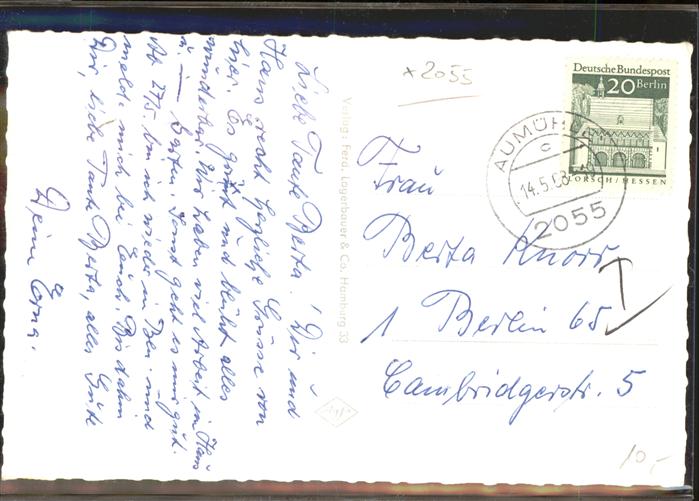 Liebe Tante Berta! Dir und
Hans recht herzliche Grüsse von
hier. Es grünt und blüht alles
wunderbar. Wir haben viel Arbeit in Haus
u. Garten. Sonst geht es mir gut.
Ab 27/5. bin ich wieder in Bln. und
melde mich bei Euch. Bis dahin
Dir, liebe Tante Berta, alles Gute
Deine Erna.
Verlag: Ferd. Lagerbauer & Co., Hamburg 33
x 2055
Deutsche Bundespost
20 Berlin
LORSCH/HESSEN
AUMÜHLE
c
14.5.68
2055
Frau
Berta Knorr
1 Berlin 65
Cambridgerstr. 5
10,-